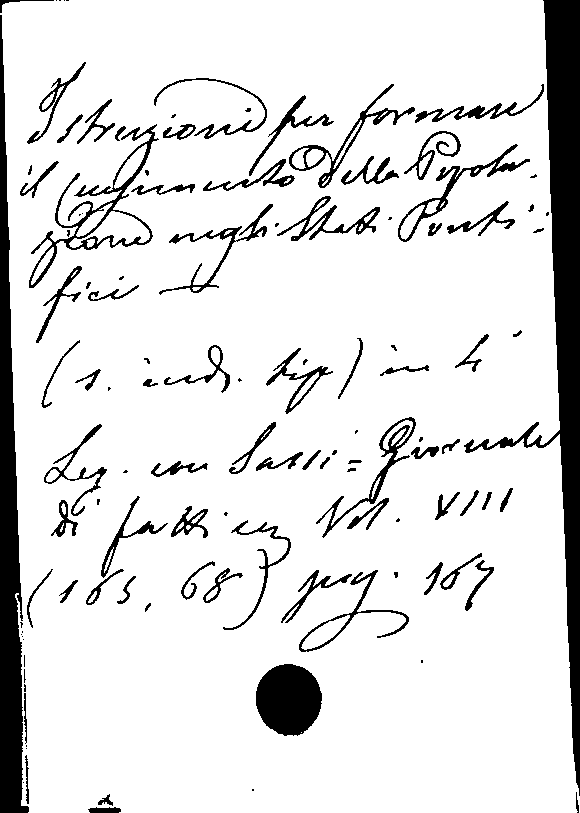 Istruzioni per formare
il censimento della Popola-
zione negli Stati Ponti-
fici —
(s. ind. tip) in 4°
Leg. con Sassi = Giornale
di fatti ecc Vol. XIII
(163, 68) pag. 167